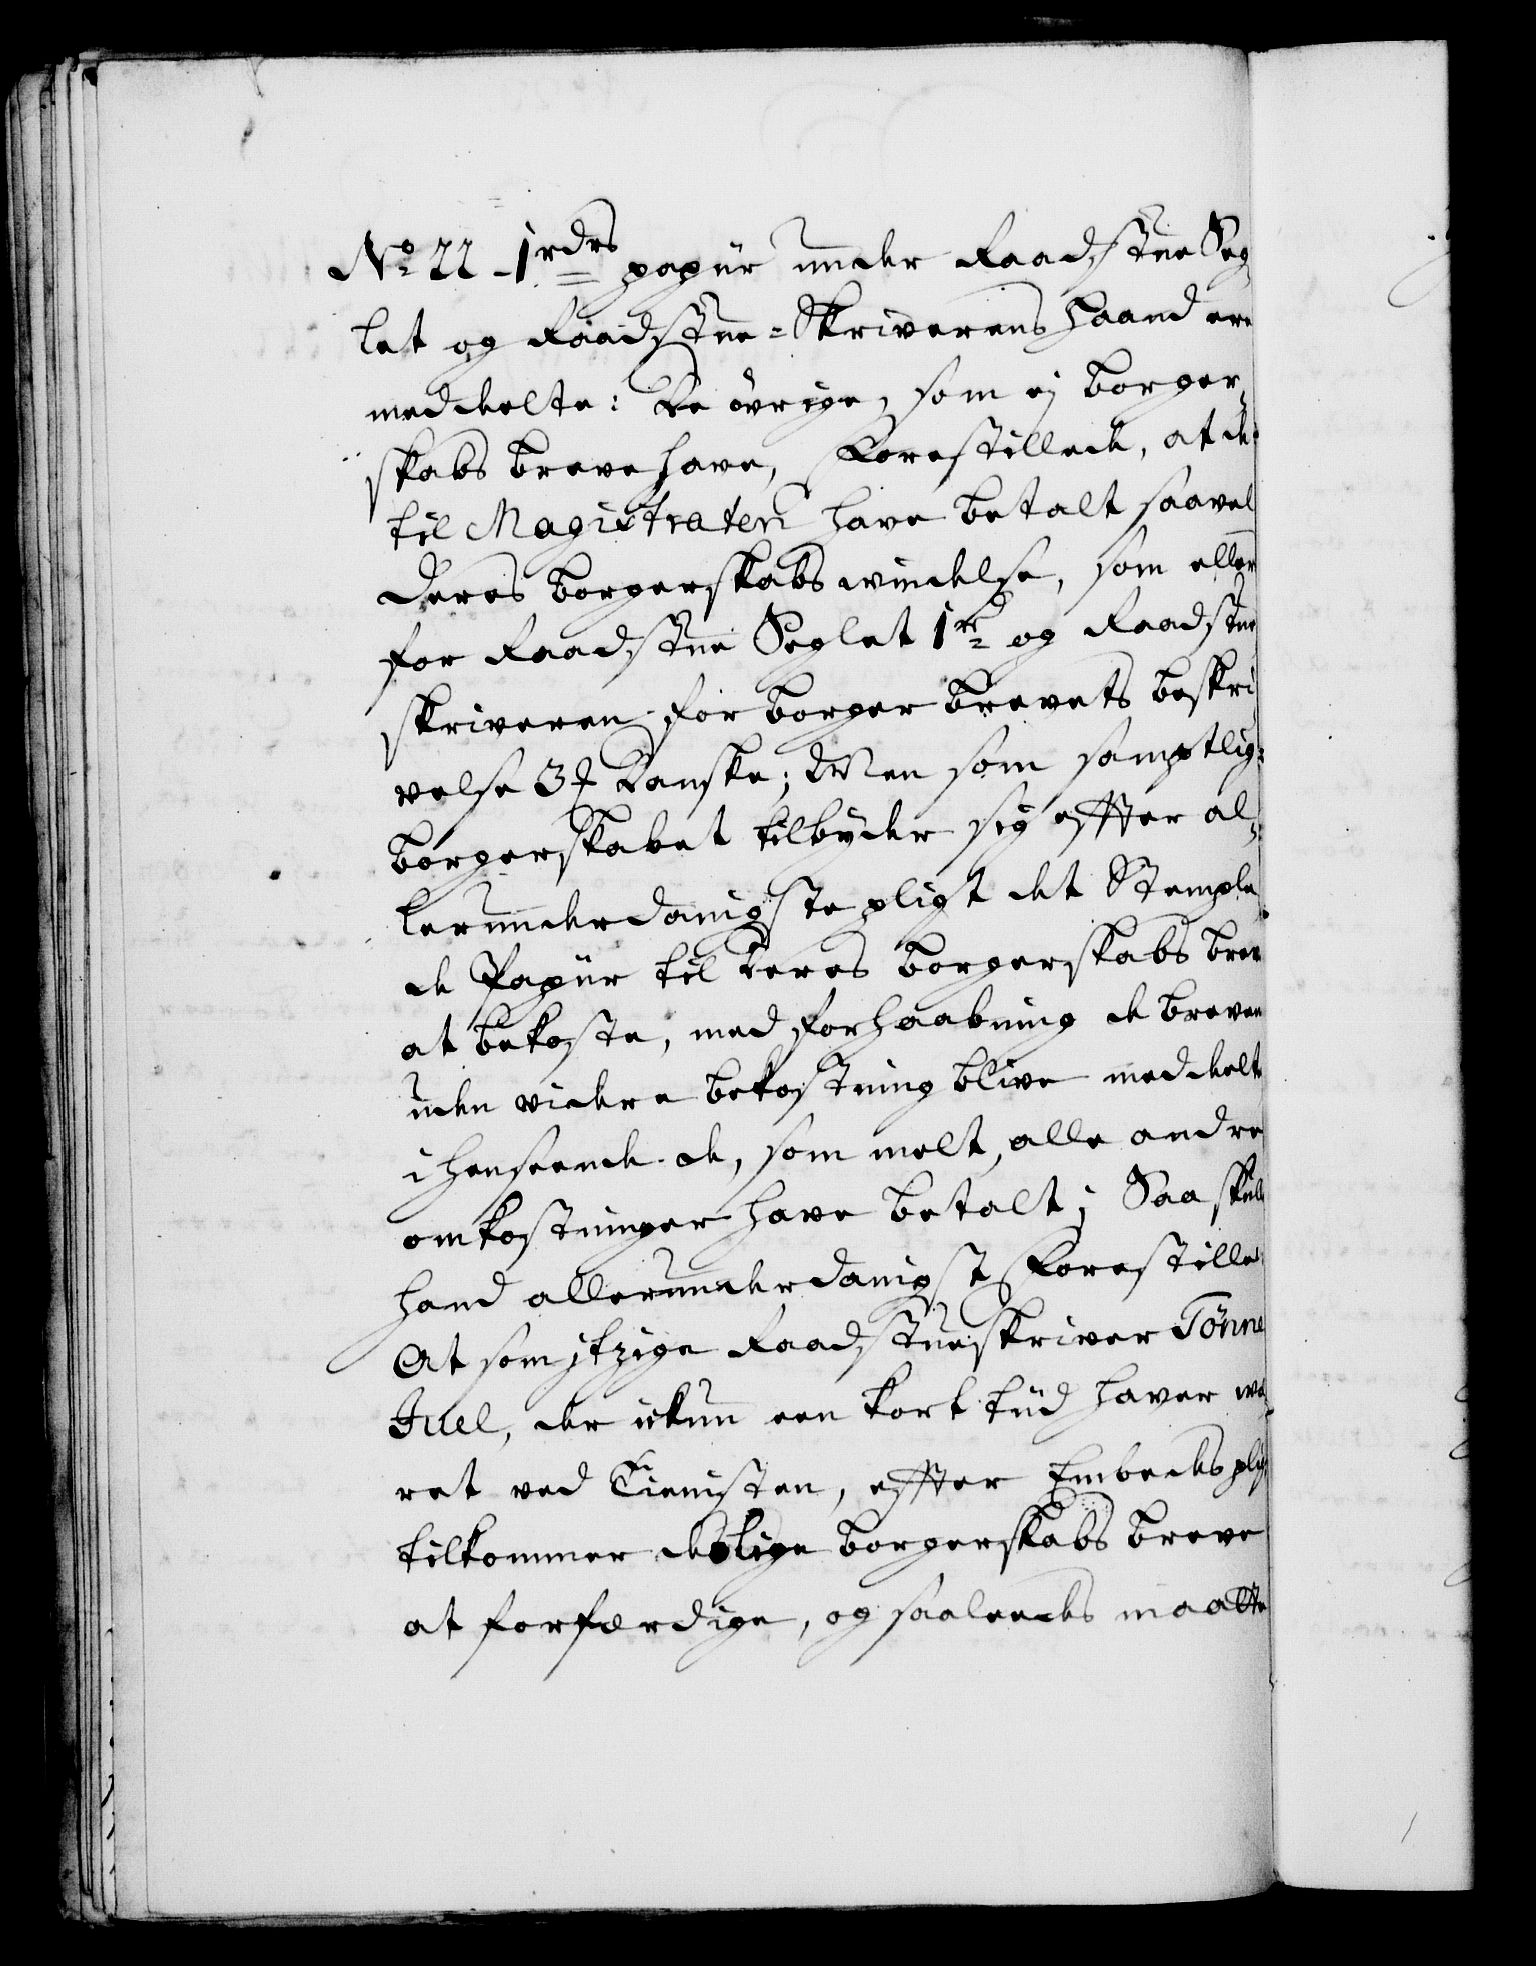 No 22 - 1 rdrs papiir under Raadstue Seg
let og Raadstue-Skriverens Haand ere
meddelte: De övrige, som ej borger
skabs breve have, Forestillede, at de
til Magistraten have betalt saavel
deres borgerskabs vindelse, som eller
for Raadstue Seglet 1 rd og Raadstue
skriveren for borger brevets beskri
velse 3 Danske; Men som samptlig
borgerskabet tilbyder sig effter al
lerunderdanigste pligt det Stemple
de Papiir til deres borgerskabs brev
at bekoste, med forhaabning de breven
uden videre bekostning blive meddelt
i henseende de, som melt, alle andre
omkostninger have betalt; Saa skul
hand allerunderdanigst Forestille
At som itzige Raadstueskriver Tönne
Juel, der ickun een kort tiid haver we
ret ved Tienisten, effter Embeds pligt
tilkommer deslige borgerskabs breve
at forfærdige, og saaleedes maatte